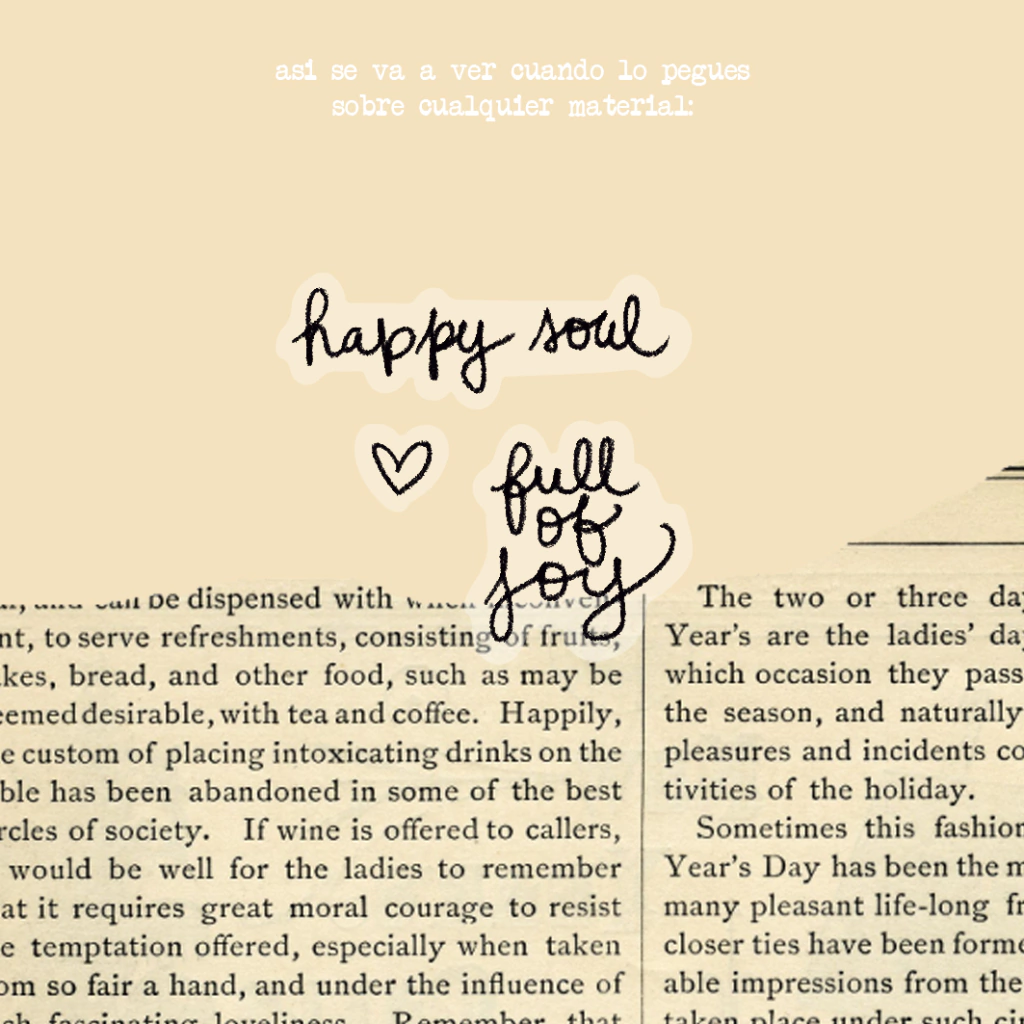 asi se va a ver cuando lo pegues
sobre cualquier material:
happy soul
full
of
joy
be dispensed with
nt, to serve refreshments, consisting of fruits,
akes, bread, and other food, such as may be
eemed desirable, with tea and coffee. Happily,
e custom of placing intoxicating drinks on the
ble has been abandoned in some of the best
rcles of society. If wine is offered to callers,
would be well for the ladies to remember
at it requires great moral courage to resist
e temptation offered, especially when taken
om so fair a hand, and under the influence of
ch fascinating loveliness. Remember that
The two or three day
Year's are the ladies' day
which occasion they pass
the season, and naturally
pleasures and incidents co
tivities of the holiday.
Sometimes this fashion
Year's Day has been the m
many pleasant life-long fr
closer ties have been forme
able impressions from the
taken place under such cir